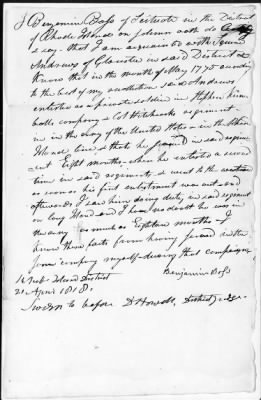 I Benjamin Bofs of Scituate in the District
of Rhode Island on solemn oath do
& say that I am acquainted with Squire
Andrews of Glocester in said District &
know that in the month of May 1775 according
to the best of my recollection said Andrews
enlisted as a private soldier in Stephen Kim-
balls company & Col Hitchcocks regiment
in the Army of the United States & in the Rhode
Island line & that he served in said regiment
Eight months when he enlisted a second
time in said regiment & went to the
as soon as his first enlistment was out and
afterwards I saw him doing duty in said regiment
on long Island and I have no doubt he was in
the army as much as Eighteen months I
know these facts from having served in the
same company myself during that campaign
Rhode Island District Benjamin Bofs
21 April 1818.
Sworn to before D Howell, District Judge